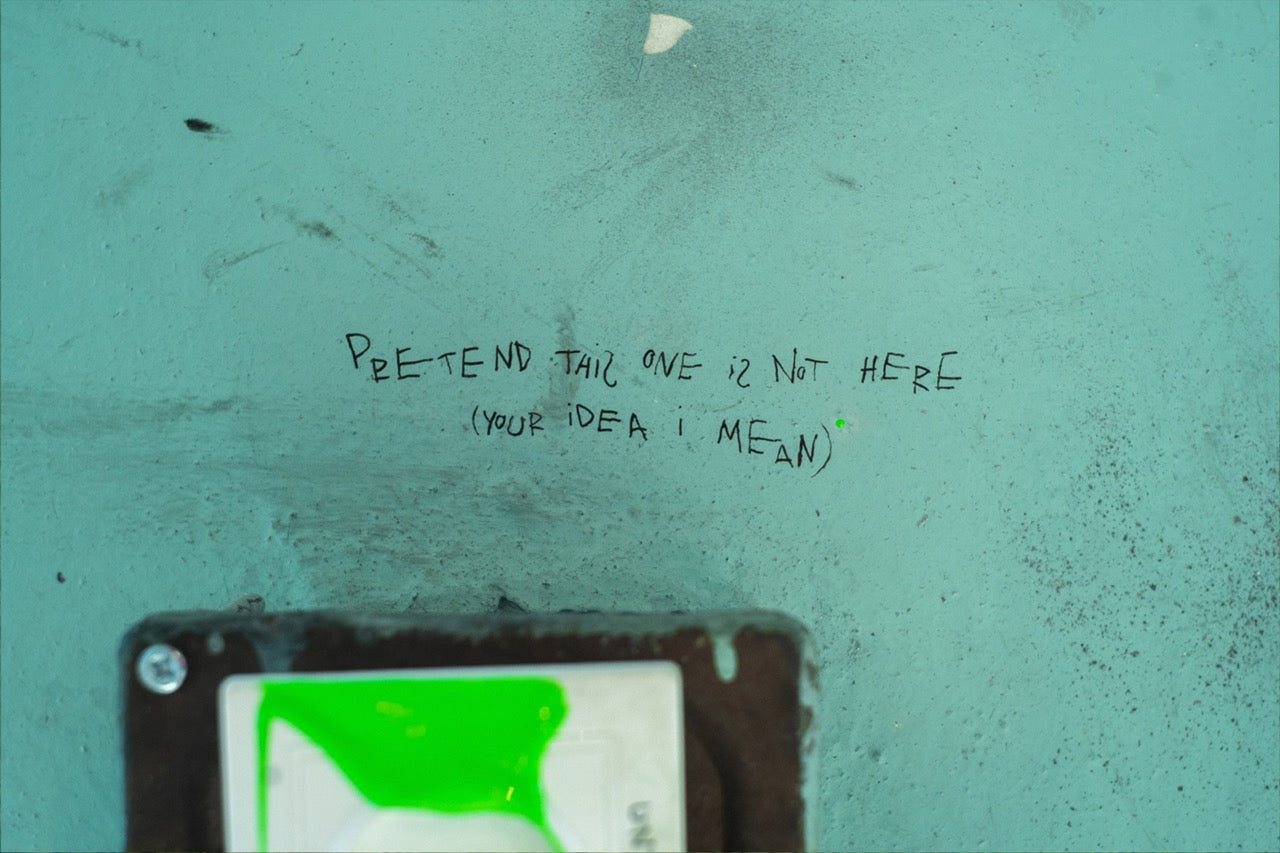 PRETEND THIS ONE iS NOT HERE
(YOUR iDEA i MEAN)